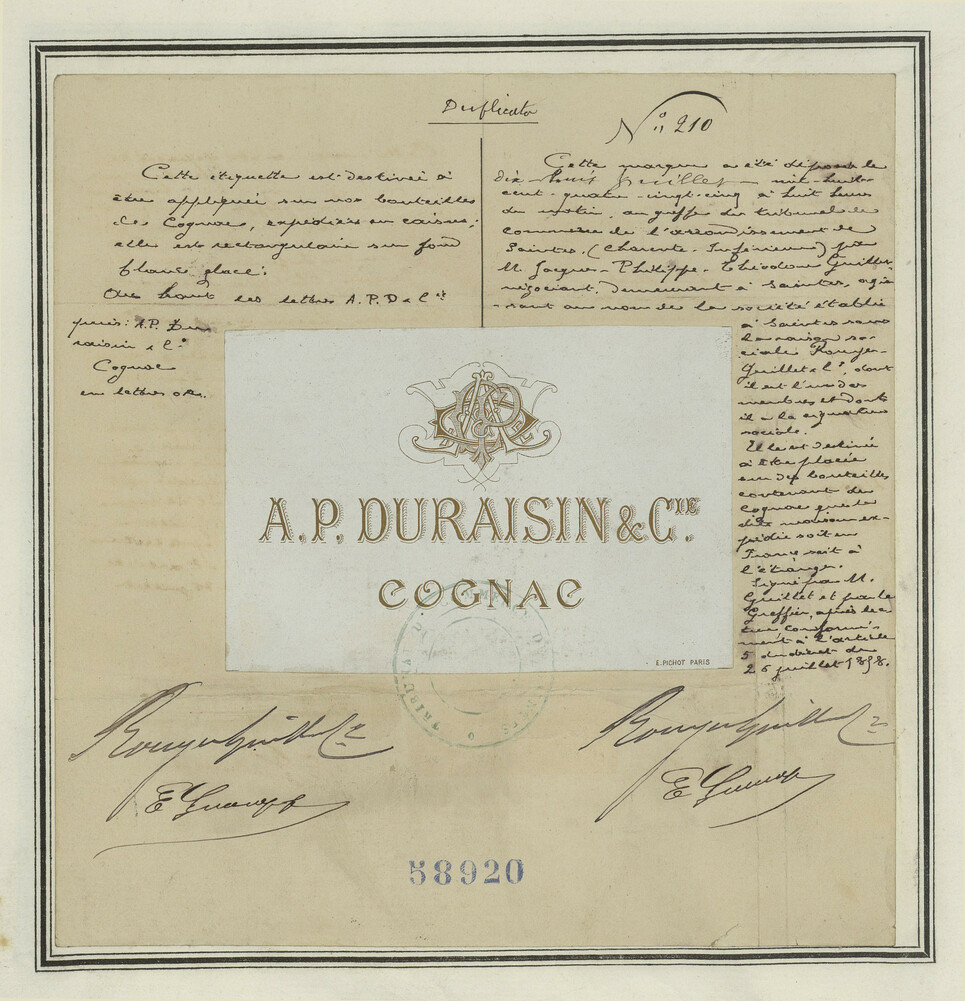 Duplicata
N° 210
Cette étiquette est destinée à
être appliquée sur nos bouteilles
de Cognac, expédiées en caisses;
elle est rectangulaire sur fond
blanc glacé.
Au haut les lettres A.P.D & Cie
puis: A.P. Du
raisin & Cie
Cognac
en lettres or.
Cette marque a été déposée le
dix huit juillet mil huit
cent quatre-vingt-cinq à huit heures
du matin, au greffe du tribunal de
commerce de l'arrondissement de
Saintes, (Charente-Inférieure) par
M. Jacques-Philippe-Théodore Guillet
négociant, demeurant à Saintes, agis-
sant au nom de la société établie
à Saintes sous
la raison so-
ciale Rouyer-
Guillet & Cie, dont
il est l'un des
membres et dont
il a la signature
sociale.
Elle est destinée
à être placée
sur des bouteilles
contenant du
Cognac que la
dite maison ex-
pédie soit en
France soit à
l'étranger.
Signé par M.
Guillet et par le
Greffier, après lec-
ture conformé-
ment à l'article
5 du décret du
26 juillet 1858.
A.P. DURAISIN & CIE.
COGNAC
E. PICHOT PARIS
TRIBUNAL DE
Rouyer Guillet & Cie
Rouyer Guillet & Cie
58920